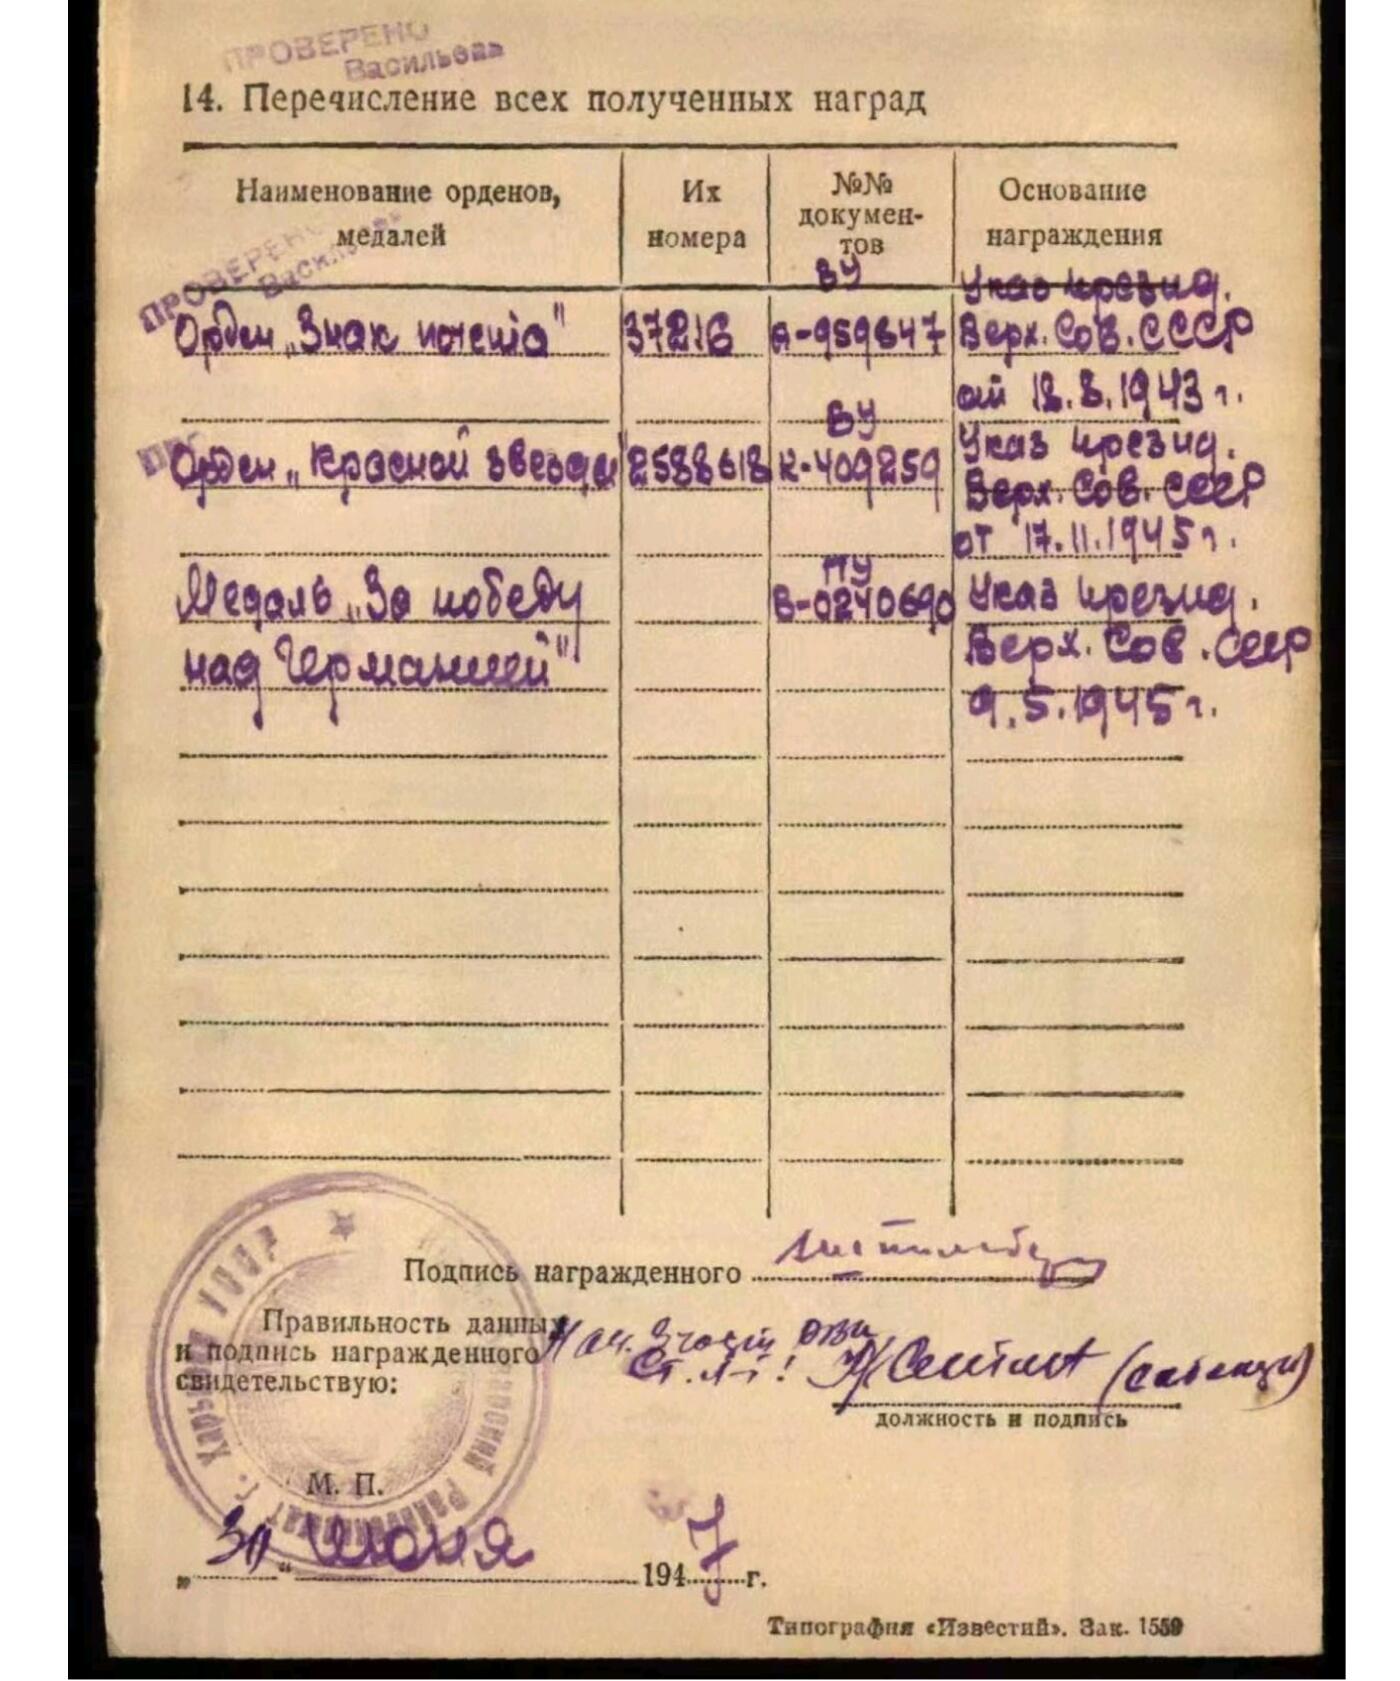 ПРОВЕРЕНО
Васильева
14. Перечисление всех полученных наград
Наименование орденов,
медалей
Их
номера
№№
докумен-
тов
Основание
награждения
ПРОВЕРЕНО
Орден „Знак почета" 37216 ВУ А-959647 Указ Презид.
Верх. Сов. СССР
от 18.8.1943 г.
Орден „Красной звезды" 2588618 ВУ К-409259 Указ Презид.
Верх. Сов. СССР
от 17.11.1945 г.
Медаль „За победу ПУ В-0240690 Указ Презид.
над Германией" Верх. Сов. СССР
9.5.1945 г.
Подпись награжденного
Правильность данных
и подпись награжденного
свидетельствую:
Нач.
Ст. л-т
должность и подпись
М. П.
г. Харьков
„30" июня 1947 г.
Типография «Известий». Зак. 1559